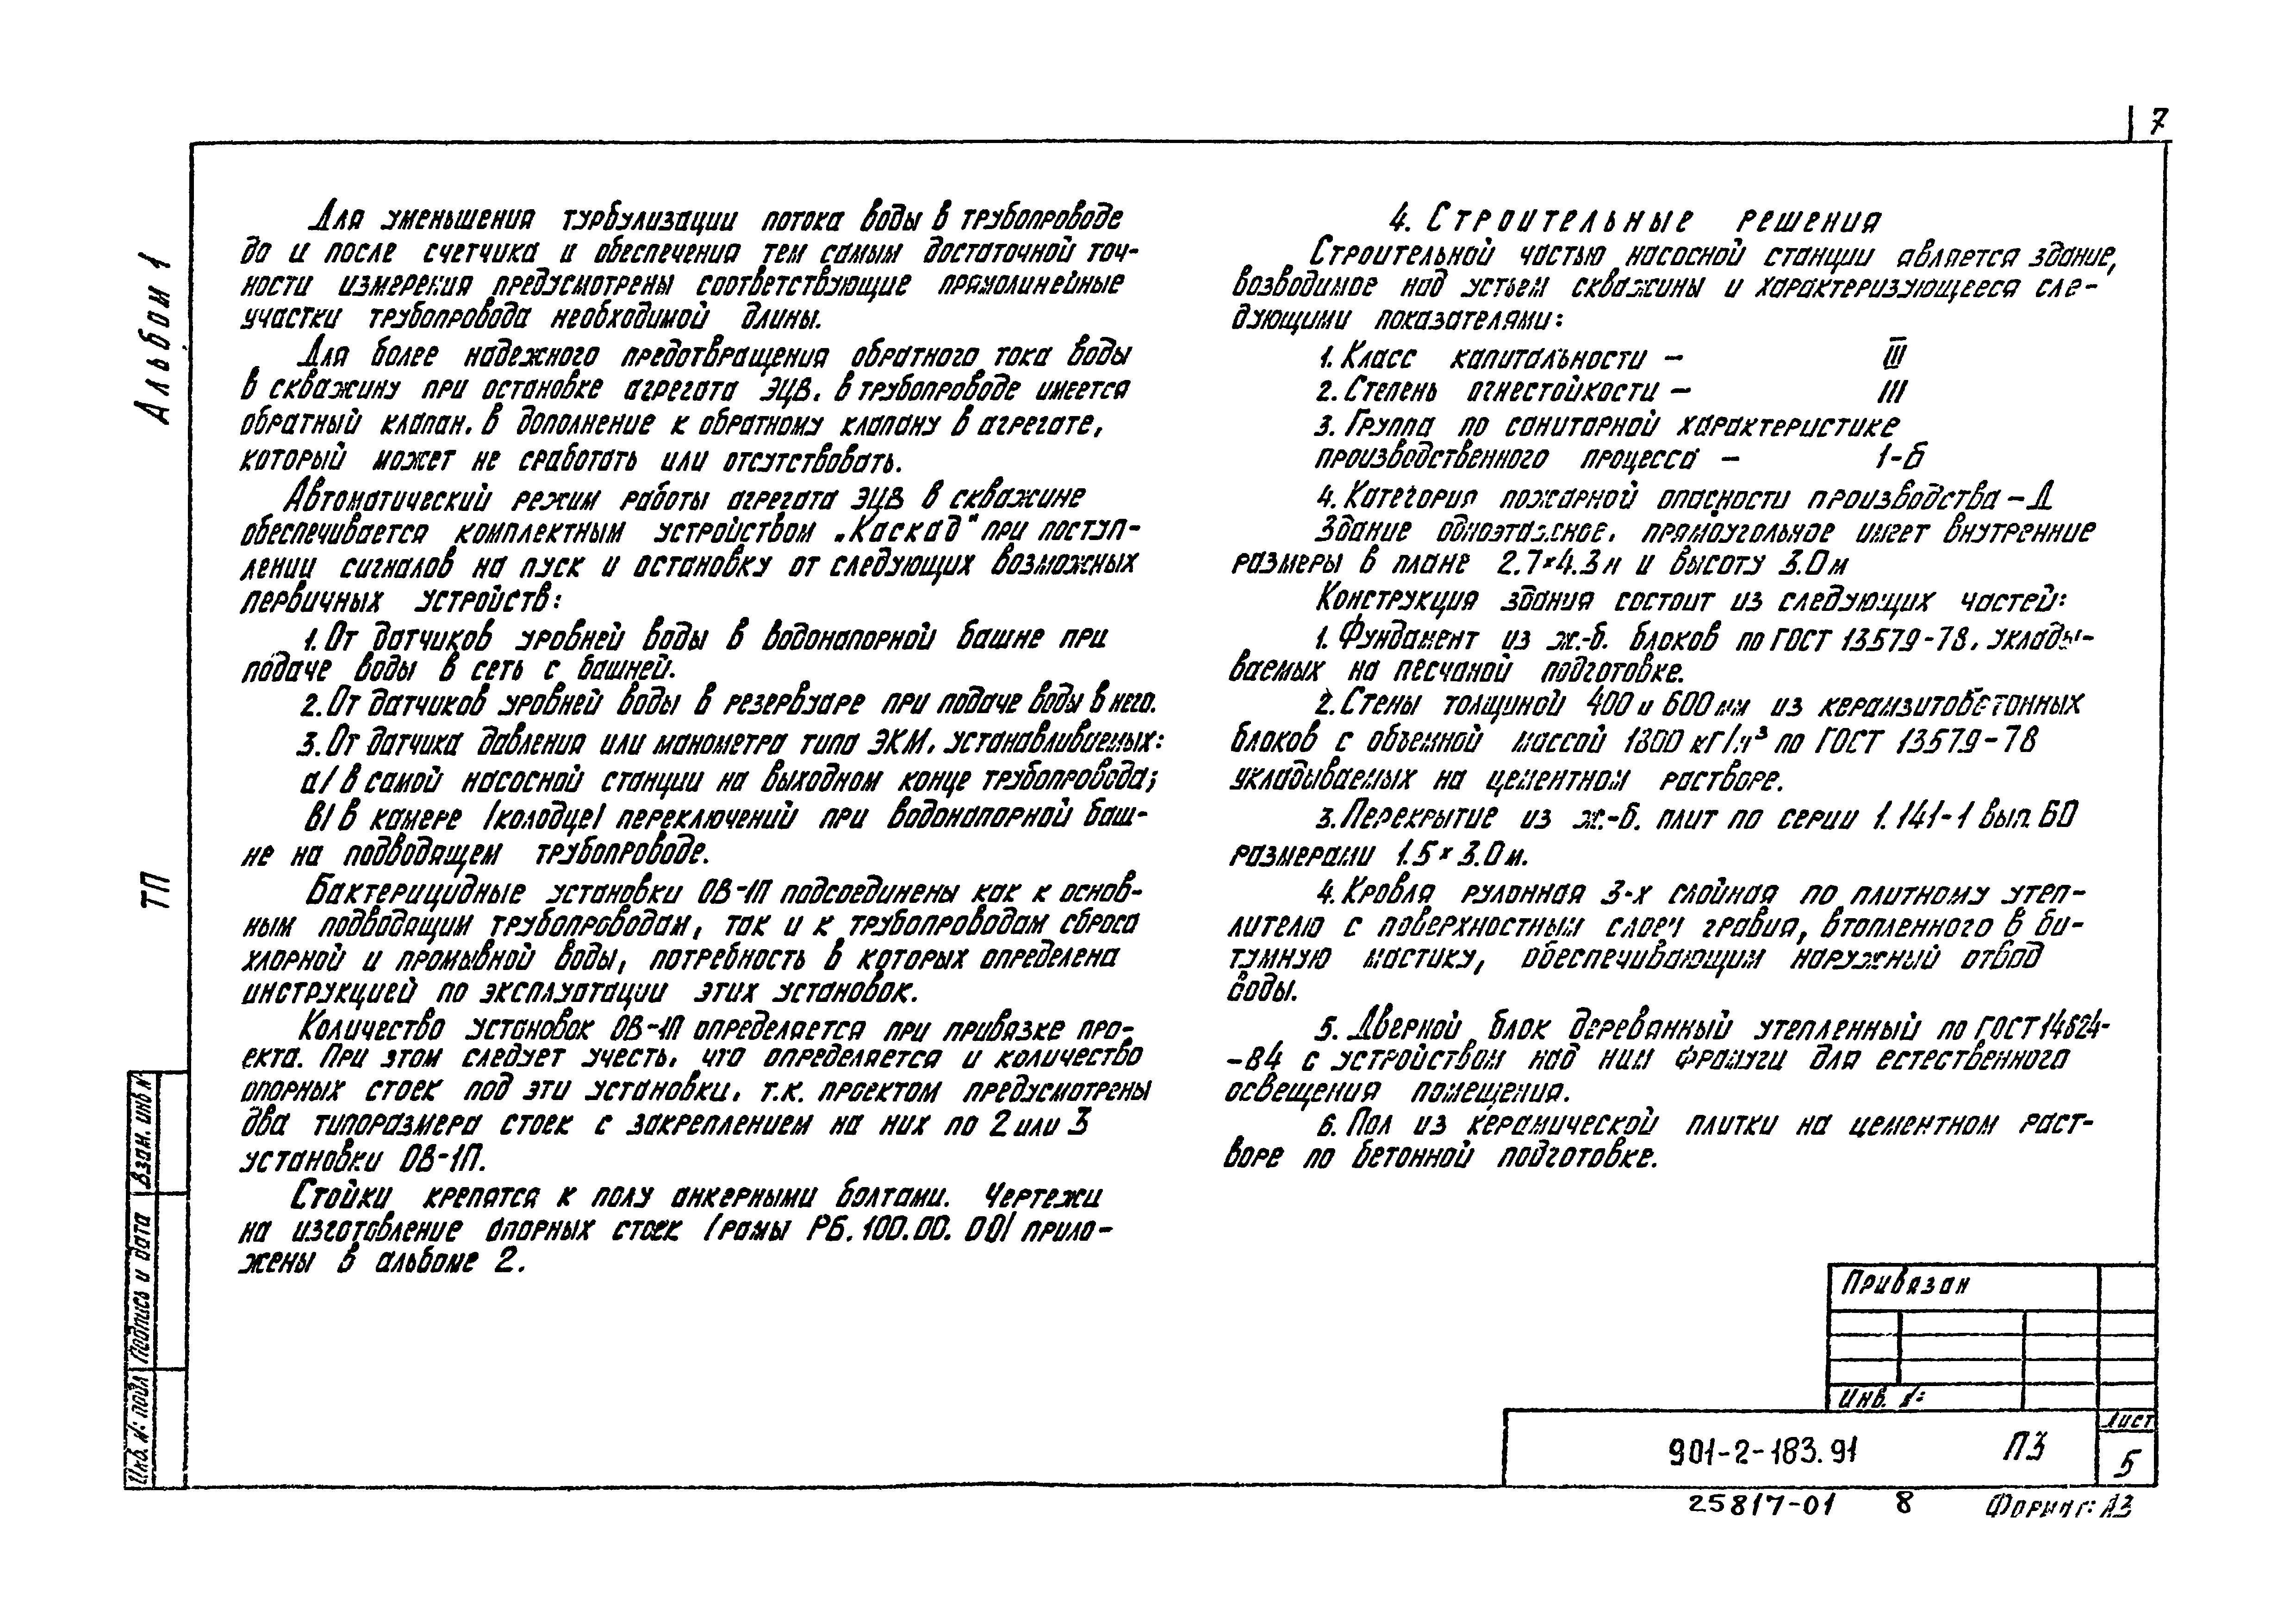 7
Альбом 1
ТП
Для уменьшения турбулизации потока воды в трубопроводе
до и после счетчика и обеспечения тем самым достаточной точ-
ности измерения предусмотрены соответствующие прямолинейные
участки трубопровода необходимой длины.
Для более надежного предотвращения обратного тока воды
в скважину при остановке агрегата ЭЦВ. в трубопроводе имеется
обратный клапан. в дополнение к обратному клапану в агрегате,
который может не сработать или отсутствовать.
Автоматический режим работы агрегата ЭЦВ в скважине
обеспечивается комплектным устройством „Каскад" при поступ-
лении сигналов на пуск и остановку от следующих возможных
первичных устройств:
1. От датчиков уровней воды в водонапорной башне при
подаче воды в сеть с башней.
2. От датчиков уровней воды в резервуаре при подаче воды в него.
3. От датчика давления или манометра типа ЭКМ. устанавливаемых:
а/ в самой насосной станции на выходном конце трубопровода;
в/ в камере /колодце/ переключений при водонапорной баш-
не на подводящем трубопроводе.
Бактерицидные установки ОВ-1П подсоединены как к основ-
ным подводящим трубопроводам, так и к трубопроводам сброса
хлорной и промывной воды, потребность в которых определена
инструкцией по эксплуатации этих установок.
Количество установок ОВ-1П определяется при привязке про-
екта. При этом следует учесть. что определяется и количество
опорных стоек под эти установки. т.к. проектом предусмотрены
два типоразмера стоек с закреплением на них по 2 или 3
установки ОВ-1П.
Стойки крепятся к полу анкерными болтами. Чертежи
на изготовление опорных стоек /рамы РБ.100.00.00/ прило-
жены в альбоме 2.
4. Строительные решения
Строительной частью насосной станции является здание,
возводимое над устьем скважины и характеризующееся сле-
дующими показателями:
1. Класс капитальности – III
2. Степень огнестойкости – III
3. Группа по санитарной характеристике
производственного процесса – 1-б
4. Категория пожарной опасности производства – Д
Здание одноэтажное. прямоугольное имеет внутренние
размеры в плане 2.7×4.3 м и высоту 3.0 м
Конструкция здания состоит из следующих частей:
1. Фундамент из ж.-б. блоков по ГОСТ 13579-78. уклады-
ваемых на песчаной подготовке.
2. Стены толщиной 400 и 600 мм из керамзитобетонных
блоков с объемной массой 1800 кг/м³ по ГОСТ 13579-78
укладываемых на цементном растворе.
3. Перекрытие из ж.-б. плит по серии 1.141-1 вып. 60
размерами 1.5 × 3.0 м.
4. Кровля рулонная 3-х слойная по плитному утеп-
лителю с поверхностным слоем гравия, втопленного в би-
тумную мастику, обеспечивающим наружный отвод
воды.
5. Дверной блок деревянный утепленный по ГОСТ 14624-
-84 с устройством над ним фрамуги для естественного
освещения помещения.
6. Пол из керамической плитки на цементном раст-
воре по бетонной подготовке.
Взам. инв №
Подпись и дата
Инв. №: подл
Привязан
Инв. №:
901-2-183.91 ПЗ
Лист
5
25817-01 8 Формат: А3